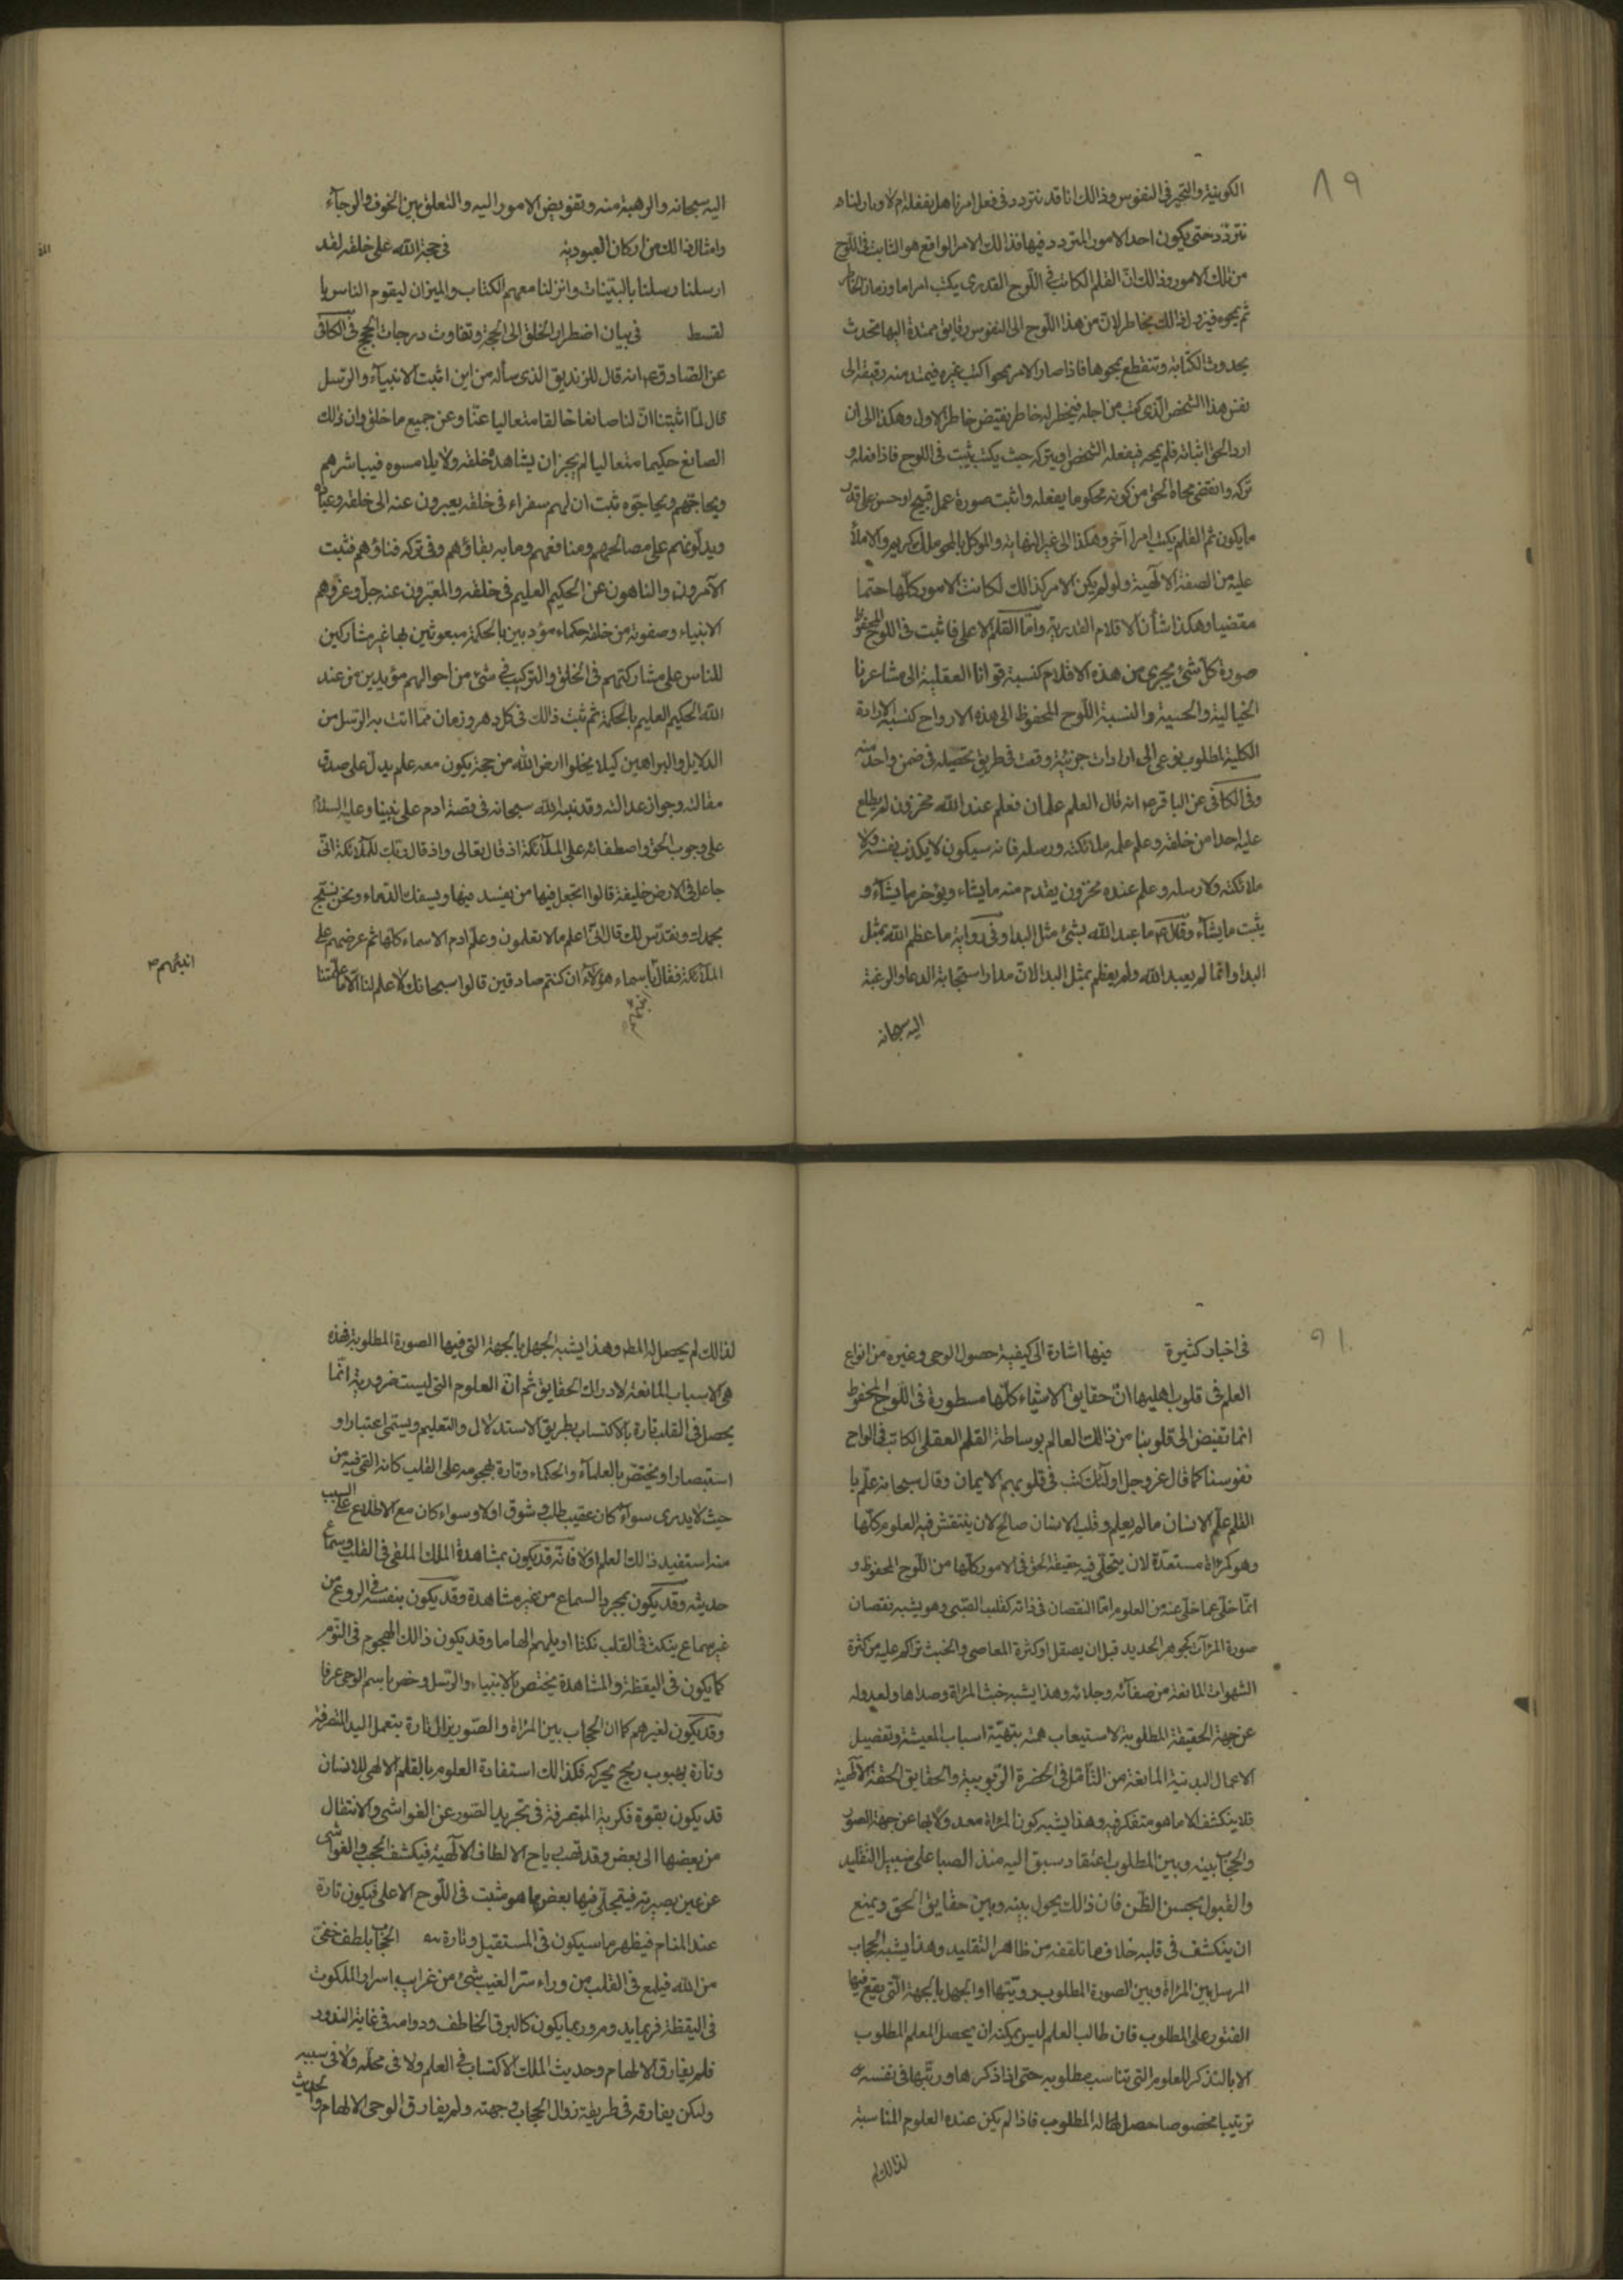 ٨٩
الكونية والتحير في النفوس وذالك انا قد نتردد في فعل امر ما هل نفعله ام لا وما زلنا
نتردد حتى يكون احد الامور المتردد فيها فذالك الامر الواقع هو الثابت في اللوح
من تلك الامور وذالك انّ القلم الكاتب في اللوح القدري يكتب امرا ما وزمان الخاطر
ثم يمحوه فيزول ذالك الخاطر لانّ من هذا اللوح الى النفوس رقايق ممتدة اليها تحدث
بحدوث الكتابة وتنقطع بمحوها فاذا صار الامر ممحوا كتب غيره فيمتد منه رقيقة الى
نفس هذا الشخص الّذي كتب من اجله فيخطر له خاطر نقيض خاطر الاول وهكذا الى ان
اراد الحق اثباته فلم يمحه فيفعله الشخص او يتركه حيث يكتب يثبت في اللوح فاذا فعله و
تركه وانقضى محاه الحق من كونه محكوما بفعله واثبت صورة عمل قبيح او حسن على قدر
ما يكون ثم القلم يكتب امرا آخر وهكذا الى غير النهاية والموكل بالمحو ملك كريم والاملأ
عليه من الصفة الالهية ولو لم يكن الامر كذالك لكانت الامور كلّها حتما
مقضيا وهكذا شأن الاقلام القدرية وامّا القلم الاعلى فاثبت في اللوح المحفوظ
صورة كلّ شئ يجري من هذه الاقلام كنسبة قوانا العقلية الى مشاعرنا
الخيالية والحسية والنسبة اللوح المحفوظ الى هذه الارواح كنسبة الارادة
الكلية لمطلوب نوعى الى ارادات جزئية وقعت في طريق تحصيله في ضمن واحد منه
وفي الكافي عن الباقر ع انه قال العلم علمان فعلم عند الله مخزون لم يطلع
عليه احدا من خلقه وعلم علمه ملائكته ورسله فانه سيكون لا يكذب نفسه ولا
ملائكته ولا رسله وعلم عنده مخزون يقدم منه ما يشاء ويؤخر ما يشآء و
يثبت ما يشآء وقال ع ما عبد الله بشئ مثل البدا وفي رواية ما عظم الله بمثل
البدا وانّما لم يعبد الله ولم يعظم بمثل البدا لانّ مدار استجابة الدعا والرغبة
اليه سبحانه
اليه سبحانه والرهبة منه وتفويض الامور اليه والتعلق بين الخوف والرجآء
وامثال ذالك من اركان العبودية في حجة الله على خلقه لقد
ارسلنا رسلنا بالبيّنات وانزلنا معهم الكتاب والميزان ليقوم الناس با
لقسط في بيان اضطرار الخلق الى الحجة وتفاوت درجات الحجج في الكافي
عن الصادق ع انه قال للزنديق الذي سأله من اين اثبت الانبيآء والرسل
قال لمّا اثبتنا انّ لنا صانعا خالقا متعاليا عنّا وعن جميع ما خلق وان ذالك
الصانع حكيما متعاليا لم يجز ان يشاهده خلقه ولا يلامسوه فيباشرهم
ويحاجّهم ويحاجّوه ثبت ان لهم سفراء في خلقه يعبرون عنه الى خلقه وعباده
ويدلّونهم على مصالحهم ومنافعهم وما به بقاؤهم وفي تركه فناؤهم فثبت
الآمرون والناهون عن الحكيم العليم في خلقه والمعبّرون عنه جل وعز وهم
الانبياء وصفوته من خلقه حكماء مؤدبين بالحكمة مبعوثين بها غير مشاركين
للناس على مشاركتهم في الخلق والتركيب في شئ من احوالهم مؤيدين من عند
الله الحكيم العليم بالحكمة ثم ثبت ذالك في كل دهر وزمان ممّا اتت به الرسل من
الدلايل والبراهين كيلا يخلوا ارض الله من حجة يكون معه علم يدل على صدق
مقالته وجواز عدالته وقد نبه الله سبحانه في قصة ادم على نبينا وعليه السلام
على وجوب الحق واصطفائه على الملآئكة اذ قال تعالى واذ قال ربك للملآئكة انّى
جاعل في الارض خليفة قالوا اتجعل فيها من يفسد فيها ويسفك الدماء ونحن نسبّح
بحمدك ونقدّس لك قال انّى اعلم ما لا تعلمون وعلّم ادم الاسماء كلّها ثم عرضهم على
الملآئكة فقال باسماء هؤلآء ان كنتم صادقين قالوا سبحانك لا علم لنا الّا ما علّمتنا
انبئهم
٩١
في اخبار كثيرة فيها اشارة الى كيفية حصول الوحى وغيره من انواع
العلم في قلوب اهليها انّ حقايق الاشياء كلّها مسطورة في اللوح المحفوظ
انما تفيض الى قلوبنا من ذالك العالم بوساطة القلم العقلى الكاتب في الواح
نفوسنا كما قال عز وجل اولآئك كتب في قلوبهم الايمان وقال سبحانه علّم با
القلم علّم الانسان ما لم يعلم وقلب الانسان صالح لان ينتقش فيه العلوم كلّها
وهو كمرآة مستعدّة لان يتجلّى فيه حقيقة الحق في الامور كلّها من اللّوح المحفوظ و
انّما خلى عما خلى عنه من العلوم امّا النقصان في ذاته كقلب الصّبى وهو يشبه نقصان
صورة المرآت كجوهر الحديد قبل ان يصقل او كثرة المعاصى والخبث تراكم عليه من كثرة
الشهوات المانعة من صفآئه وجلائه وهذا يشبه خبث المرآة وصداها ولعدوله
عن جهة الحقيقة المطلوبة لاستيعاب همته بتهيّة اسباب المعيشة وتفصيل
الاعمال البدنية المانعة من التأمّل في الحضرة الرّبوبية والحقايق الحقة الآلهية
فلا ينكشف الا ما هو متفكر فيه وهذا يشبه كون المرآة معدولا بها عن جهة الصور
والحجاب بينه وبين المطلوب اعتقاد سبق اليه منذ الصبا على سبيل التقليد
والقبول بحسن الظّن فان ذالك يحول بينه وبين حقايق الحق ويمنع
ان ينكشف في قلبه خلاف ما تلقفه من ظاهر التقليد وهذا يشبه الحجاب
المرسل بين المرآة وبين الصورة المطلوب رويّتها او الجهل بالجهة الّتي يقع فيها
العثور على المطلوب فان طالب العلم ليس يمكنه ان يحصل المعلم المطلوب
الا بالتذكر للعلوم التي تناسب مطلوبه حتى اذا ذكرها ورتّبها في نفسه
ترتيبا مخصوصا حصل له المطلوب فاذا لم يكن عنده العلوم المناسبة
لذالك لم
لذالك لم يحصل له المط وهذا يشبه الجهل بالجهة التي فيها الصورة المطلوبة فهذه
هي الاسباب المانعة لادراك الحقايق ثم انّ العلوم التي ليست ضرورية انّما
يحصل في القلب تارة بالاكتساب بطريق الاستدلال والتعليم ويسمّى اعتبارا و
استبصارا ويختصّ بالعلمآء والحكماء وتارة بهجومه على القلب كانه القى فيه من
حيث لا يدرى سوآء كان عقيب طلب وشوق اولا وسواء كان مع الاطلاع على السبب
منه استفيد ذالك العلم اولا فانّه قد يكون بمشاهدة الملك الملقى في القلب وسماع
حديثه وقد يكون بمجرد السماع من غير مشاهدة وقد يكون بنفسه في الروع من
غير سماع ينكت في القلب نكتا او يلهم الهاما وقد يكون ذالك الهجوم في النوم
كما يكون في اليقظة والمشاهدة يختص بالانبياء والرسل وخص باسم الوحى عرفا
وقد يكون لغيرهم كما ان الحجاب بين المرآة والصّور يزال تارة بتعمل اليد المتصرفة
وتارة بهبوب ريح يحركه فكذالك استفادة العلوم بالقلم الالهى للانسان
قد يكون بقوة فكرية المتصرفة في تجريد الصّور عن الغواشى والانتقال
من بعضها الى بعض وقد تهب رياح الالطاف الآلهية فيكشف الحجب والغواشى
عن عين بصيرته فيتجلّى فيها بعض ما هو مثبت في اللّوح الاعلى فيكون تارة
عند المنام فيظهر ما سيكون في المستقبل وتارة الحجاب بلطف خفىّ
من الله فيلمع في القلب من وراء ستر الغيب شئ من غرايب اسرار الملكوت
في اليقظة فربما يدوم وربما يكون كالبرق الخاطف ودوامه في غاية الندور
فلم يفارق الالهام وحديث الملك الاكتساب في العلم ولا في محلّه ولا في سببه
ولكن يفارقه في طريقة زوال الحجاب وجهته ولم يفارق الوحى الالهام والحديث